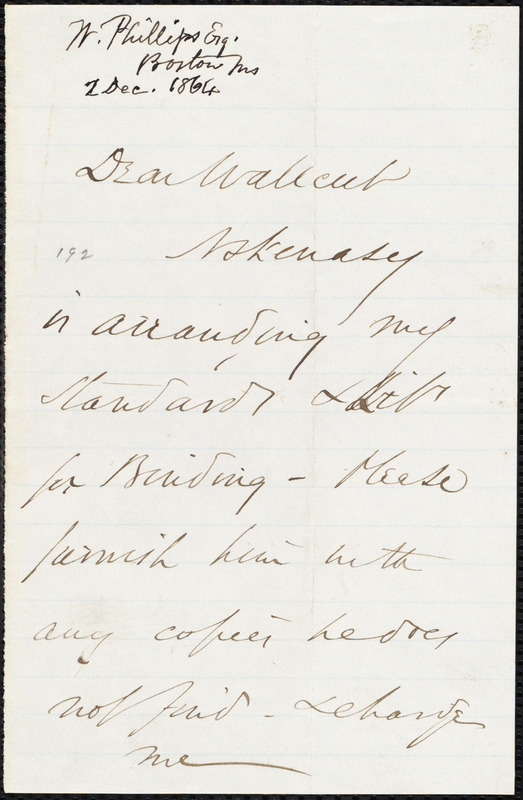 W. Phillips Esq.
Boston Ms
2 Dec. 1864
Dear Wallcut
192
Askenasy
is arranging my
Standards & Libs
for Binding - Please
furnish him with
any copies he does
not find - & charge
me